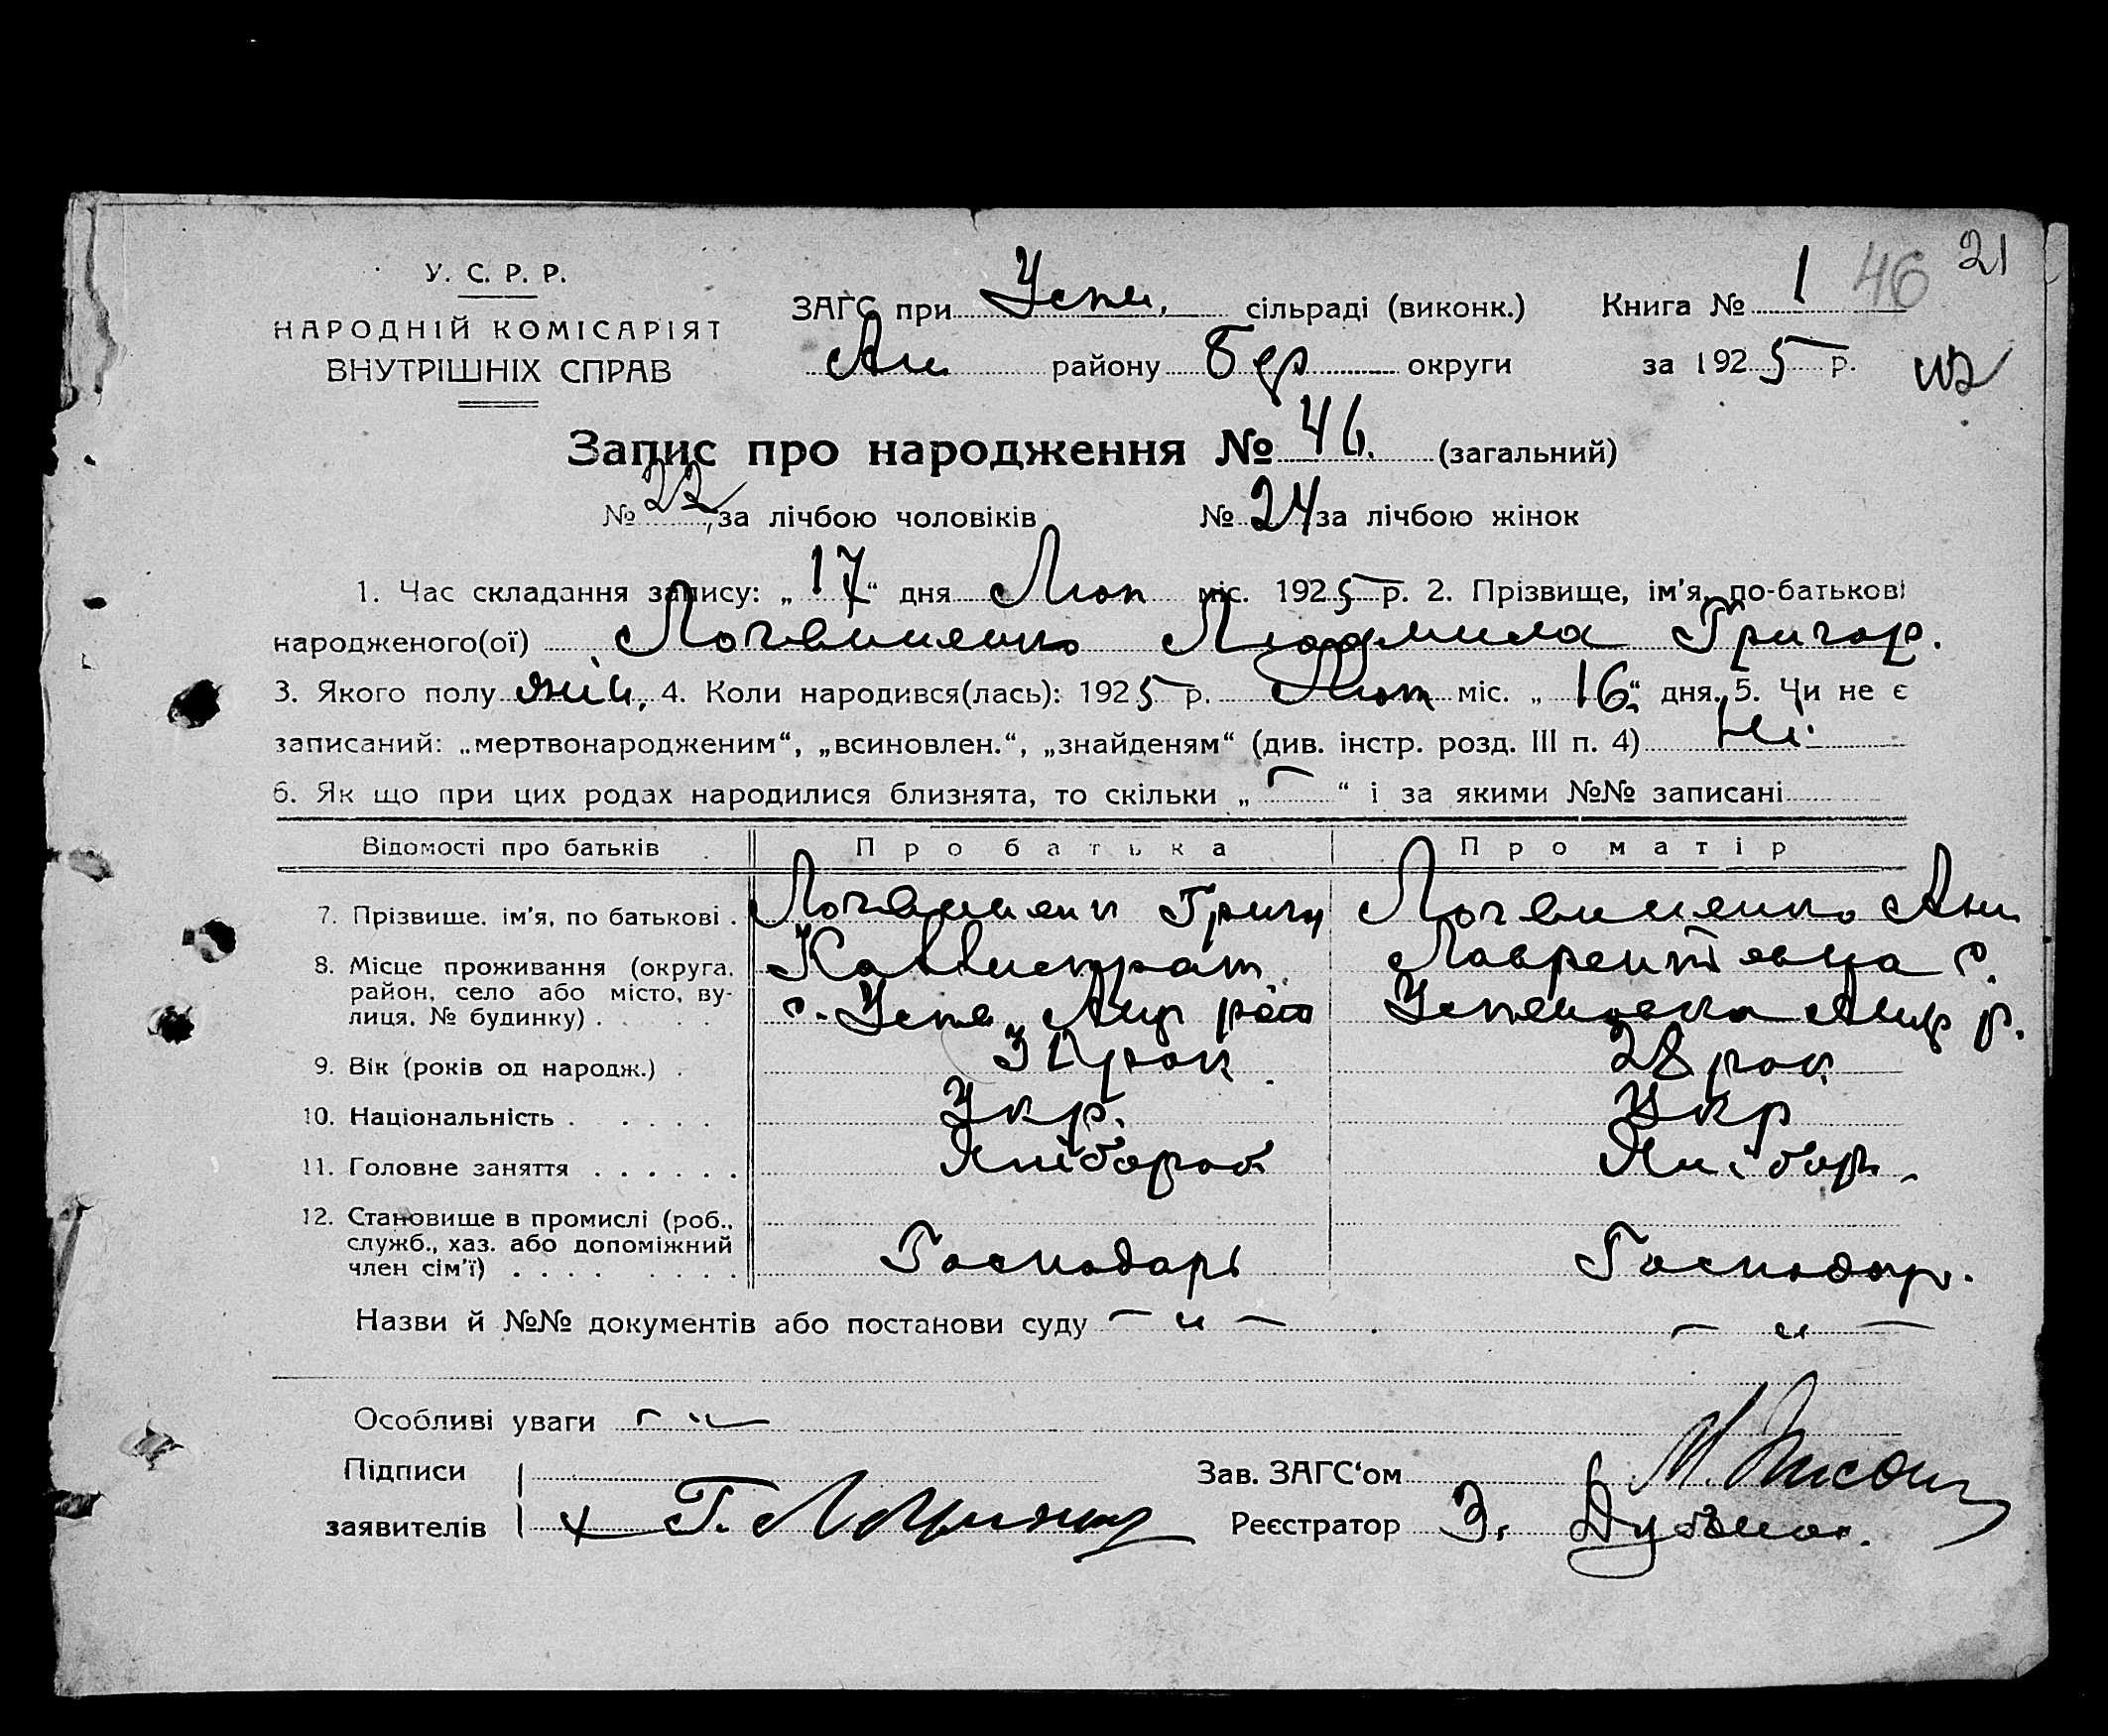 21
46
У. С. Р. Р.
НАРОДНІЙ КОМІСАРІЯТ
ВНУТРІШНІХ СПРАВ
ЗАГС при Успе. сільраді (виконк.) Книга № 1
Ан району Бер округи за 1925 р.
Запис про народження № 46. (загальний)
№ 22 за лічбою чоловіків № 24 за лічбою жінок
1. Час складання запису: „17“ дня Лют міс. 1925 р. 2. Прізвище, ім'я, по-батькові
народженого(ої) Логвиненко Людмила Григор.
3. Якого полу жін. 4. Коли народився(лась): 1925 р. Лют міс. „16“ дня. 5. Чи не є
записаний: „мертвонародженим“, „всиновлен.“, „знайденям“ (див. інстр. розд. III п. 4) Ні.
6. Як що при цих родах народилися близнята, то скільки „—“ і за якими №№ записані
Відомості про батьків Про батька Про матір
7. Прізвище, ім'я, по батькові . Логвиненко Григ Логвиненко Ан
8. Місце проживання (округа, Каллистрат. Лаврентівна с.
район, село або місто, ву-
лиця, № будинку) . . . . . с. Успе. Андр Успеновка Андр р.
9. Вік (років од народж.) . рок 28 рок
10. Національність . . . . . Укр. Укр
11. Головне заняття . . . . . . Хліборob Хлібор.
12. Становище в промислі (роб.,
служб., хаз. або допоміжний
член сім'ї) . . . . . . . . Господарь Господар.
Назви й №№ документів або постанови суду — „ — — „ —
Особливі уваги — „ —
Підписи Зав. ЗАГС‘ом М.
заявителів Г. Реєстратор З.